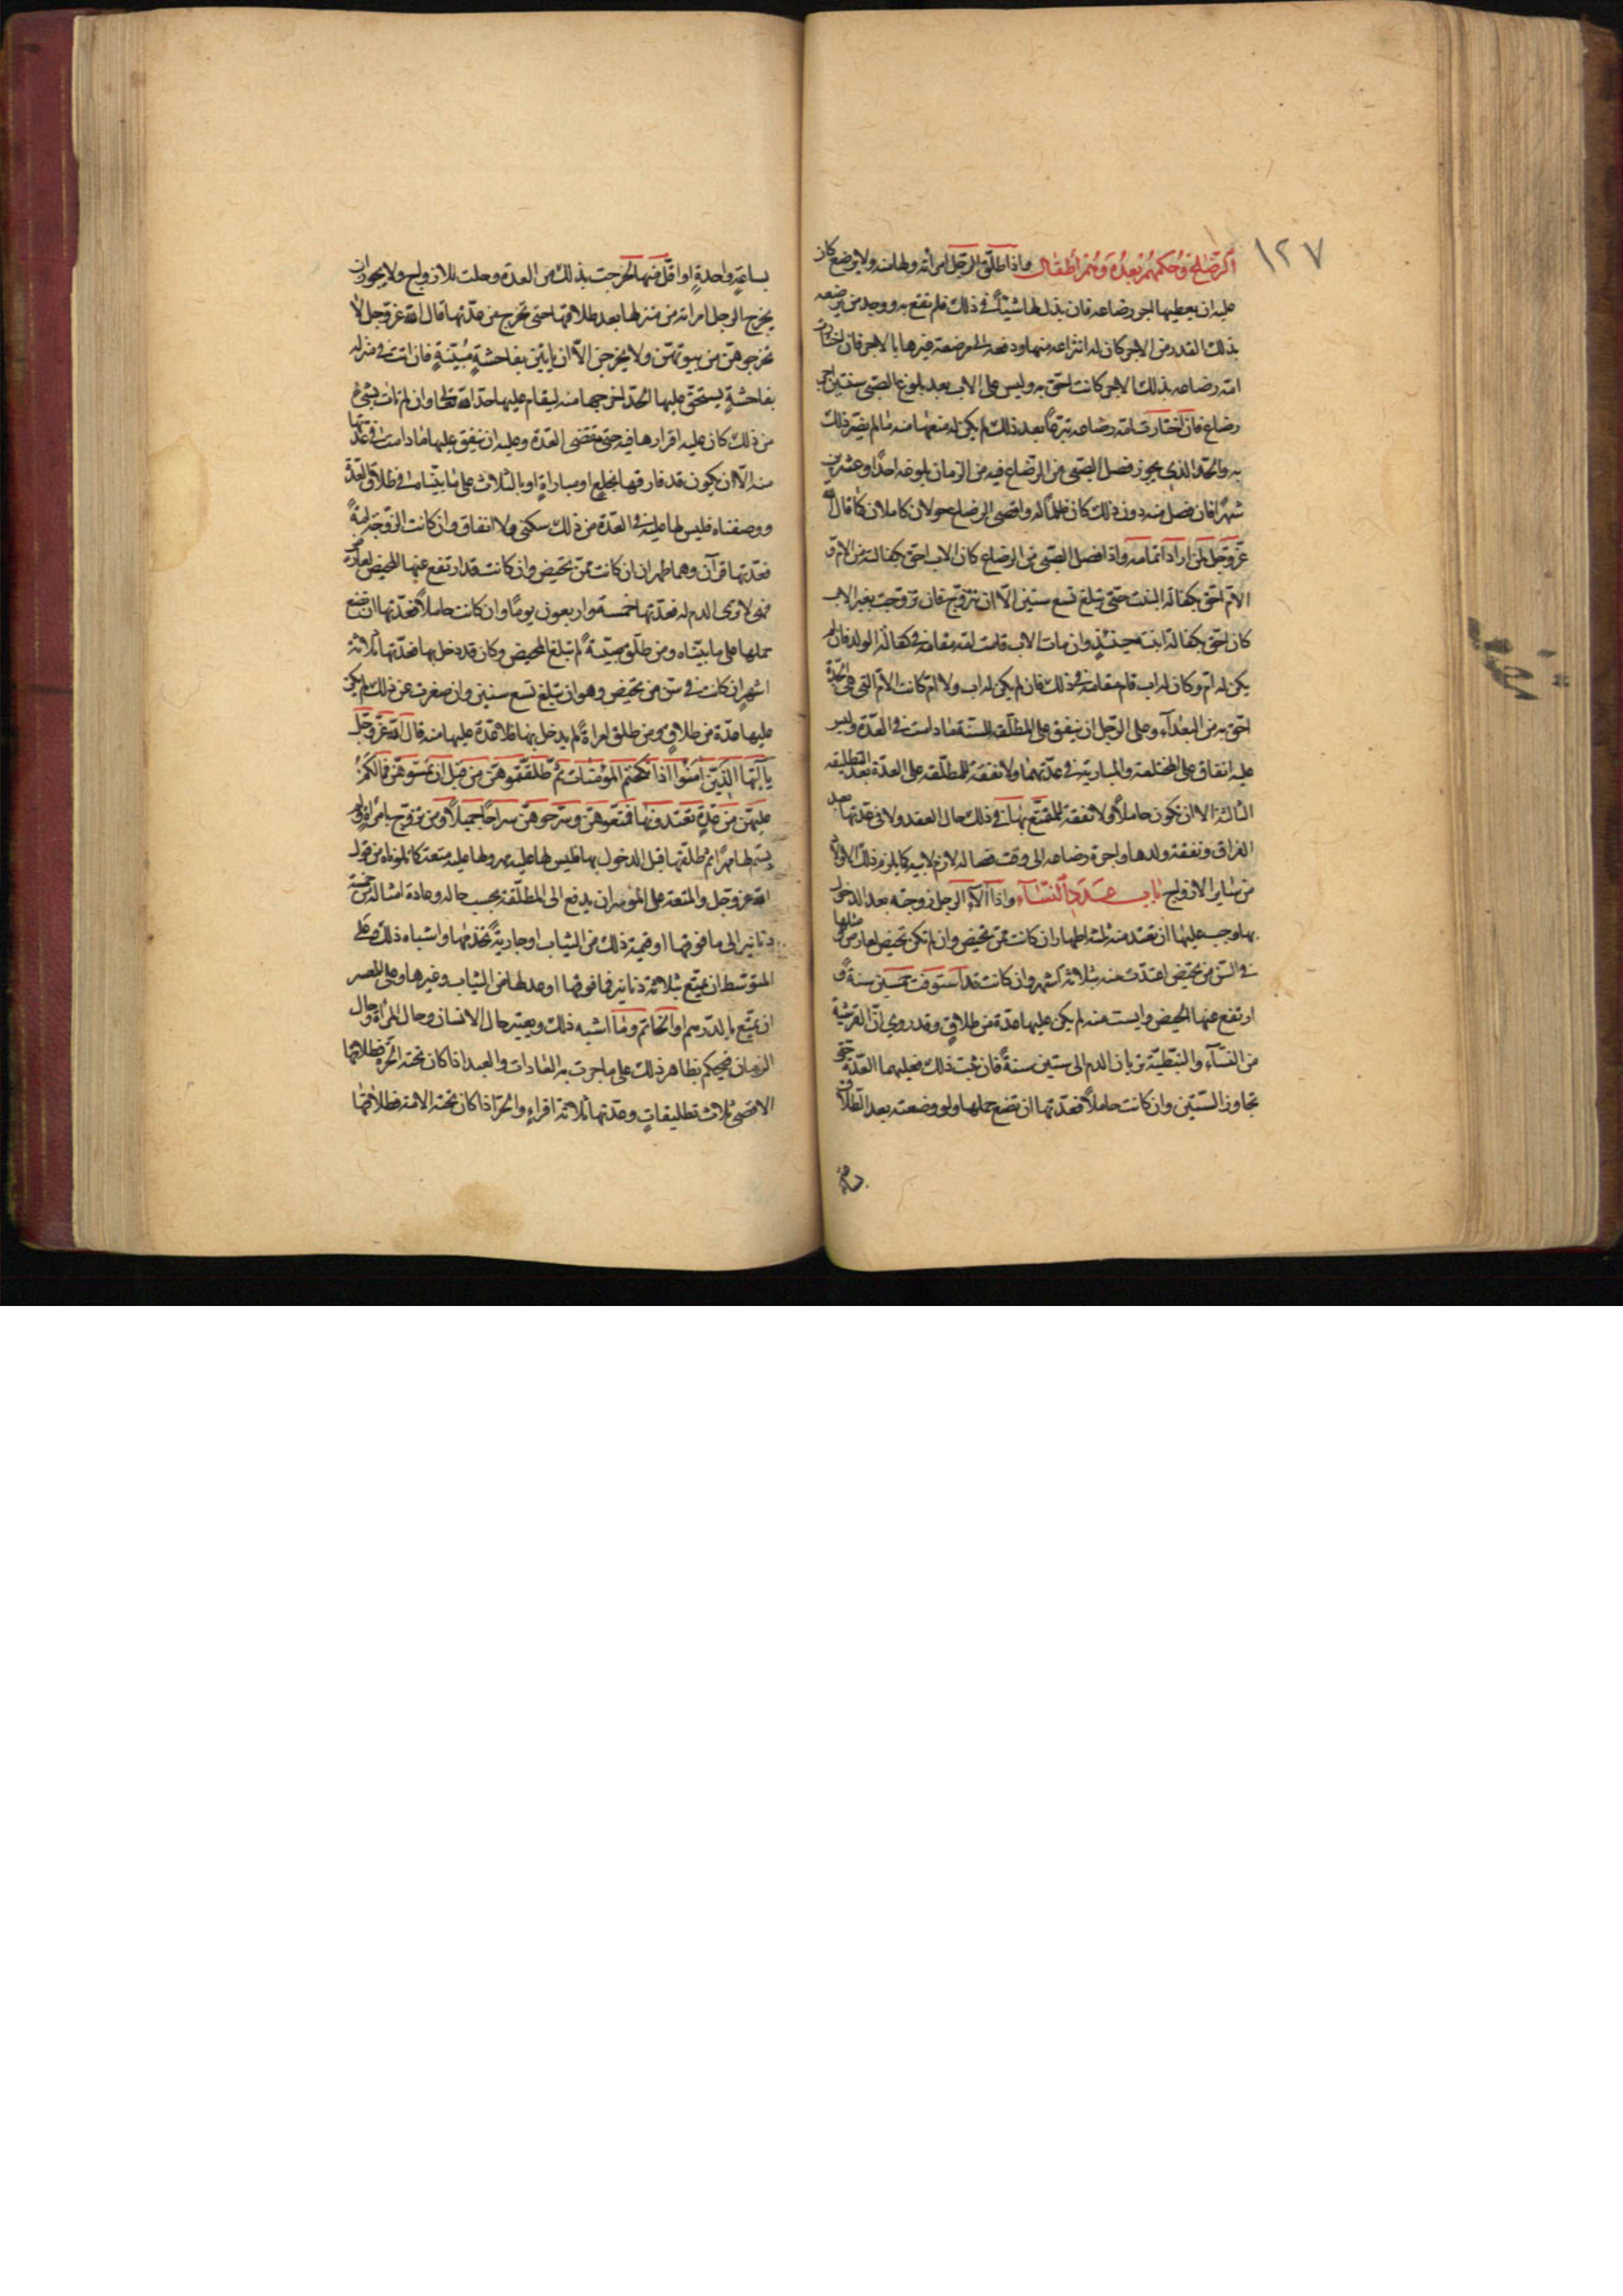 ١٢٧
الرضاع وحكمهم بعده وهم أطفال واذا طلق الرجل امرأته ولها منه ولد يرضع كان
عليه ان يعطيها اجر رضاعه فان بذل لها شيئاً في ذلك فلم تقنع به ووجد من يرضعه
بذلك القدر من الاجر كان له انتزاعه منها ودفعه الى مرضعة غيرها بالاجر فان اختارت
امه رضاعه بذلك الاجر كانت احق به وليس على الاب بعد بلوغ الصبي سنتين اجر
رضاع فان اختارت امه رضاعه تبرعاً بعد ذلك لم يكن له منعها منه ما لم يضر ذلك
به والحد الذي يجوز فصل الصبي من الرضاع فيه من الزمان بلوغه احدا وعشرين
شهرًا فان فصل منه دون ذلك كان ظلماً له واقصى الرضاع حولان كاملان كما قال الله
عز وجل لمن اراد اتمامه واذا فصل الصبي من الرضاع كان الاب احق بكفالته من الام و
الام احق بكفالة البنت حتى تبلغ تسع سنين الا ان تتزوج فان تزوجت بغير الاب
كان احق بكفالة ابنته حينئذٍ وان مات الاب قامت امه مقامه في كفالة الولد فان لم
يكن له ام وكان له اب قام مقامه في ذلك فان لم يكن له اب ولا ام كانت الام التي هي الجدة
احق به من البعداء وعلى الرجل ان ينفق على المطلقة للسنة ما دامت في العدة وليس
عليه انفاق على المختلعة والمبارية في عدتهما ولا نفقة للمطلقة على العدة بعد التطليقة
الثالثة الا ان تكون حاملاً ولا نفقة للمتمتع بها في ذلك حال العقد ولا في عدتها بعد
الفراق ونفقة ولدها واجرة رضاعه الى وقت فصاله لازم لابيه كما يلزم ذلك الاولاد
من ساير الازواج باب عدد النساء واذا الرجل زوجته بعد الدخول
بها وجب عليها ان تعتد منه ثلثة اطهار ان كانت ممن تحيض وان لم تكن تحيض لعارض ومثلها
في السن من تحيض اعتدت منه بثلاثة اشهر وان كانت قد استوفت خمسين سنة و
ارتفع عنها الحيض وايست منه لم يكن عليها عدة من طلاق وقد روي ان القرشية
من النساء والنبطية تريان الدم الى ستين سنة فان ثبت ذلك فعليهما العدة حتى
تجاوز الستين وان كانت حاملاً فعدتها ان تضع حملها ولو وضعته بعد الطلاق
بساعة
بساعة واحدة او اقل منها لخرجت بذلك من العدة وحلت للازواج ولا يجوز ان
يخرج الرجل امراته من منزلها بعد طلاقها حتى تخرج من عدتها قال الله عز وجل لا
تخرجوهن من بيوتهن ولا يخرجن الا ان ياتين بفاحشة مبينة فان اتت في منزله
بفاحشة يستحق عليها الحد اخرجها منه ليقام عليها حد الله تعالى وان لم تات بشئ
من ذلك كان عليه اقرارها فيه حتى تنقضي العدة وعليه ان ينفق عليها ما دامت في عدتها
منه الا ان يكون قد فارقها بخلع او مباراة او بالثلاث على ما بيناه في طلاق العدة
ووصفناه فليس لها عليه في العدة من ذلك سكنى ولا انفاق وان كانت الزوجة امة
فعدتها قرآن وهما طهران ان كانت ممن تحيض وان كانت قد ارتفع عنها المحيض لعارض
فهي لا ترى الدم له فعدتها خمسة واربعون يوماً وان كانت حاملاً فعدتها ان تضع
حملها على ما بيناه ومن طلق صبية لم تبلغ المحيض وكان قد دخل بها فعدتها ثلاثة
اشهر ان كانت في سن من تحيض وهو ان تبلغ تسع سنين وان صغرت عن ذلك لم يكن
عليها عدة من طلاق ومن طلق امرأة لم يدخل بها فلا عدة عليها منه قال الله عز وجل
يا ايها الذين آمنوا اذا نكحتم المؤمنات ثم طلقتموهن من قبل ان تمسوهن فما لكم
عليهن من عدة تعتدونها فمتعوهن وسرحوهن سراحاً جميلاً ومن تزوج بامراة ولم
يسم لها مهراً ثم طلقها قبل الدخول بها فليس لها عليه مهر ولها عليه متعة كما تلوناه من قول
الله عز وجل والمتعة على الموسر ان يدفع الى المطلقة بحسب حاله وعادة امثاله من خمسة
دنانير الى ما فوقها او قيمة ذلك من الثياب او جارية تخدمها واشباه ذلك وعلى
المتوسط ان يمتع بثلاثة دنانير فما فوقها او عدلها من الثياب وغيرها وعلى المعسر
ان يمتع بالدرهم او الخاتم وما اشبه ذلك ويعتبر حال الانسان وحال المرأة وحال
الزمان فيحكم بظاهر ذلك على ما جرت به العادات والعبد اذا كان تحته الحرة فطلاقها
الاقصى ثلاث تطليقات وعدتها ثلاثة اقراء والحر اذا كان تحته الامة فطلاقها